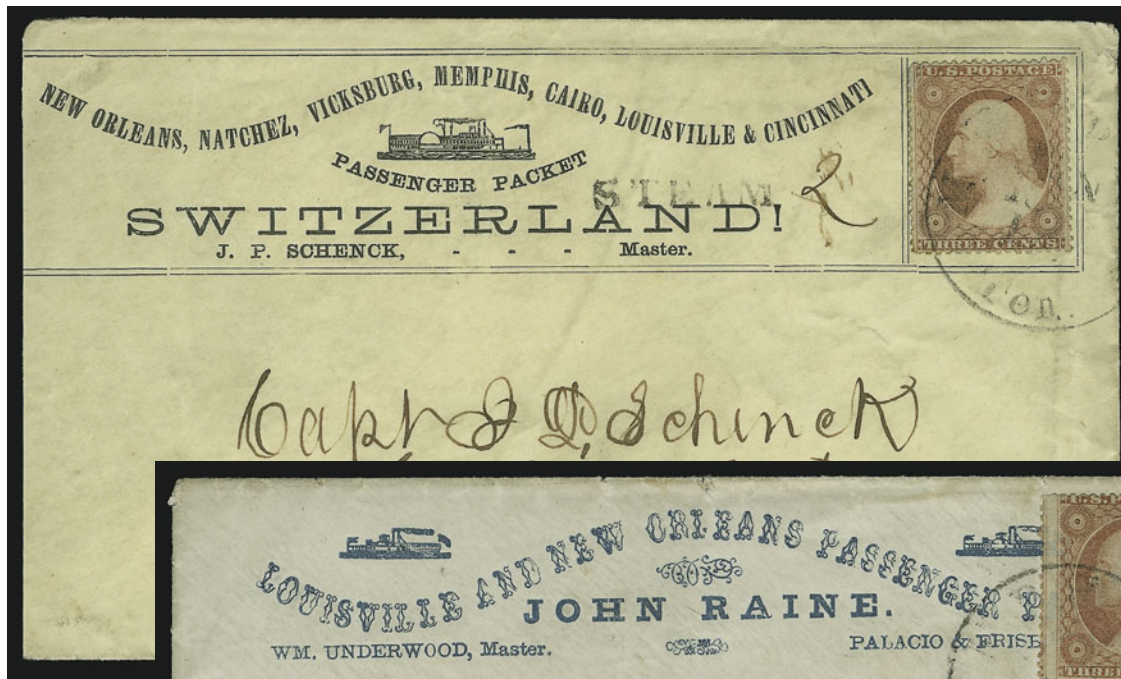 NEW ORLEANS, NATCHEZ, VICKSBURG, MEMPHIS, CAIRO, LOUISVILLE & CINCINNATI
U.S. POSTAGE
PASSENGER PACKET
STEAM 2
SWITZERLAND!
J. P. SCHENCK, - - - Master.
THREE CENTS
Capt J P Schenck
LOUISVILLE AND NEW ORLEANS PASSENGER P
JOHN RAINE.
WM. UNDERWOOD, Master. PALACIO & FRISB
THREE